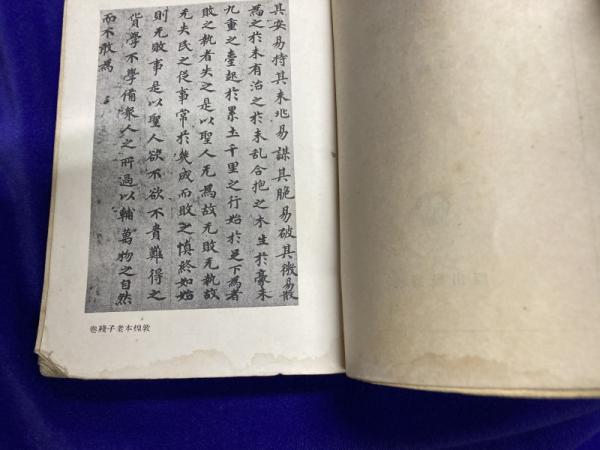 其安易持其未兆易謀其脆易破其微易散
為之於未有治之於未乱合抱之木生於豪末
九重之臺起於累土千里之行始於足下為者
敗之執者失之是以聖人无為故无敗无執故
无失民之従事常於幾成而敗之慎終如始
則无敗事是以聖人欲不欲不貴難得之
貨學不學備衆人之所過以輔萬物之自然
而不敢為
敦煌本老子殘卷